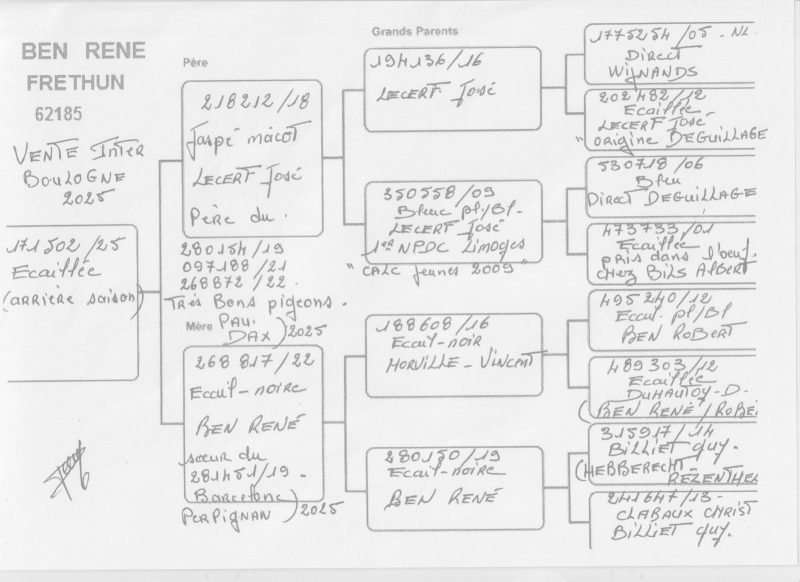 BEN RENE
FRETHUN
62185
VENTE Inter
BOULOGNE
2025
171502/25
Ecaillée
(arrière saison)
Père
218212/18
Jaspé macot
LECERF José
Père du.
280154/19
097188/21
268872/22.
Très Bons pigeons.
PAU.
DAX) 2025
Mère
268817/22
Ecail-noire
BEN RENÉ
sœur du
281451/19-
Barcelone
PERPIGNAN) 2025
Grands Parents
194136/16
LECERF José
350558/09
Bleue pl/Bl-
LECERF José
1er NPDC Limoges
"CALC jeunes 2009"
188608/16
Ecail-noir
HORVILLE-Vincent
280150/19
Ecail-noire
BEN RENÉ
1775254/05-NL
Direct
WIJNANDS
202482/12
Ecaillée
LECERF José
"origine DEGUILLAGE
530718/06
Bleu
Direct DEGUILLAGE
473733/01
Ecaillée
pris dans l'oeuf
chez BILS ALBERT
495240/12
Ecail. pl/Bl
BEN ROBERT
489303/12
Ecaillée
DUHAUTOY-D-
(BEN RENÉ/ROBE
315917/14
BILLIET Guy.
(HEBBERECHT-
REZENTHEL
241647/13-
CLABAUX CHRIST
BILLIET Guy.